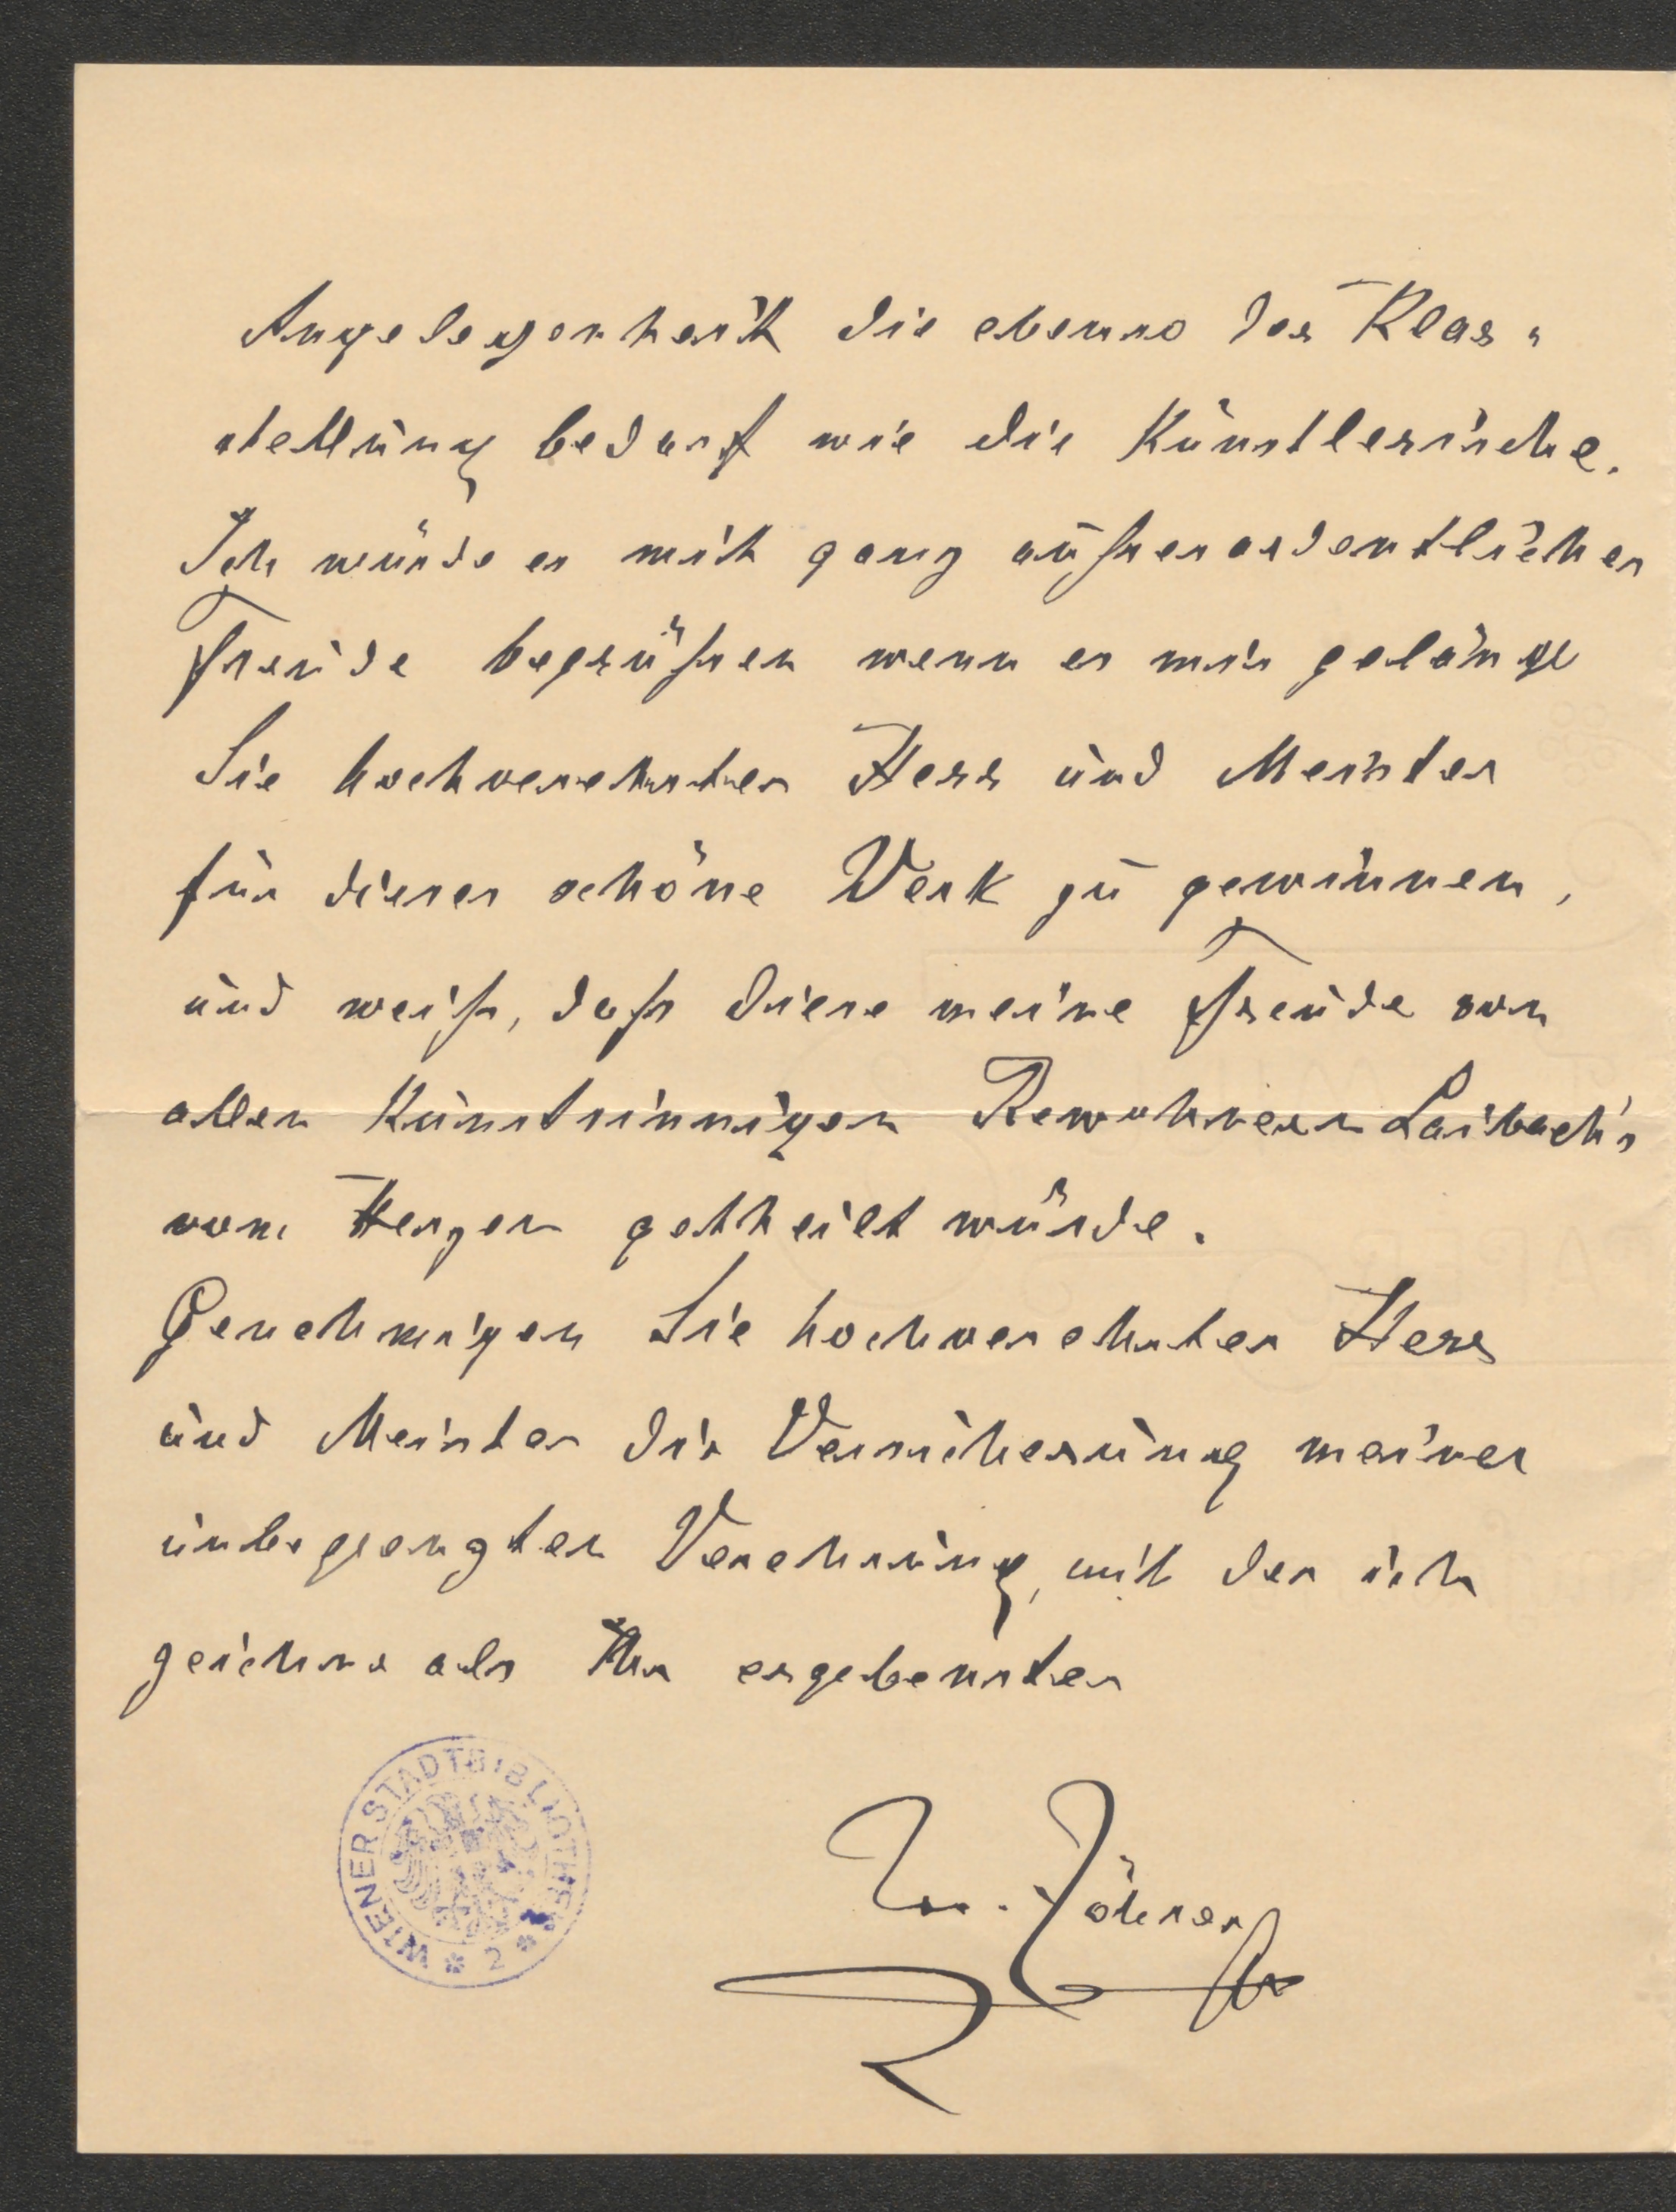 Angelegenheit die ebenso der Klar-
stellung bedarf wie die Künstlerische.
Ich würde es mit ganz außerordentlicher
Freude begrüßen wenn es mir gelänge
Sie hochverehrter Herr und Meister
für dieses schöne Werk zu gewinnen,
und weiß, daß diese meine Freude von
allen Kunstsinnigen Bewohnern Laibach's
vom Herzen getheilt würde.
Genehmigen Sie hochverehrter Herr
und Meister die Versicherung meiner
unbegrenzten Verehrung, mit der ich
zeichne als Ihr ergebenster
WIENER STADTBIBLIOTHEK * 2 *